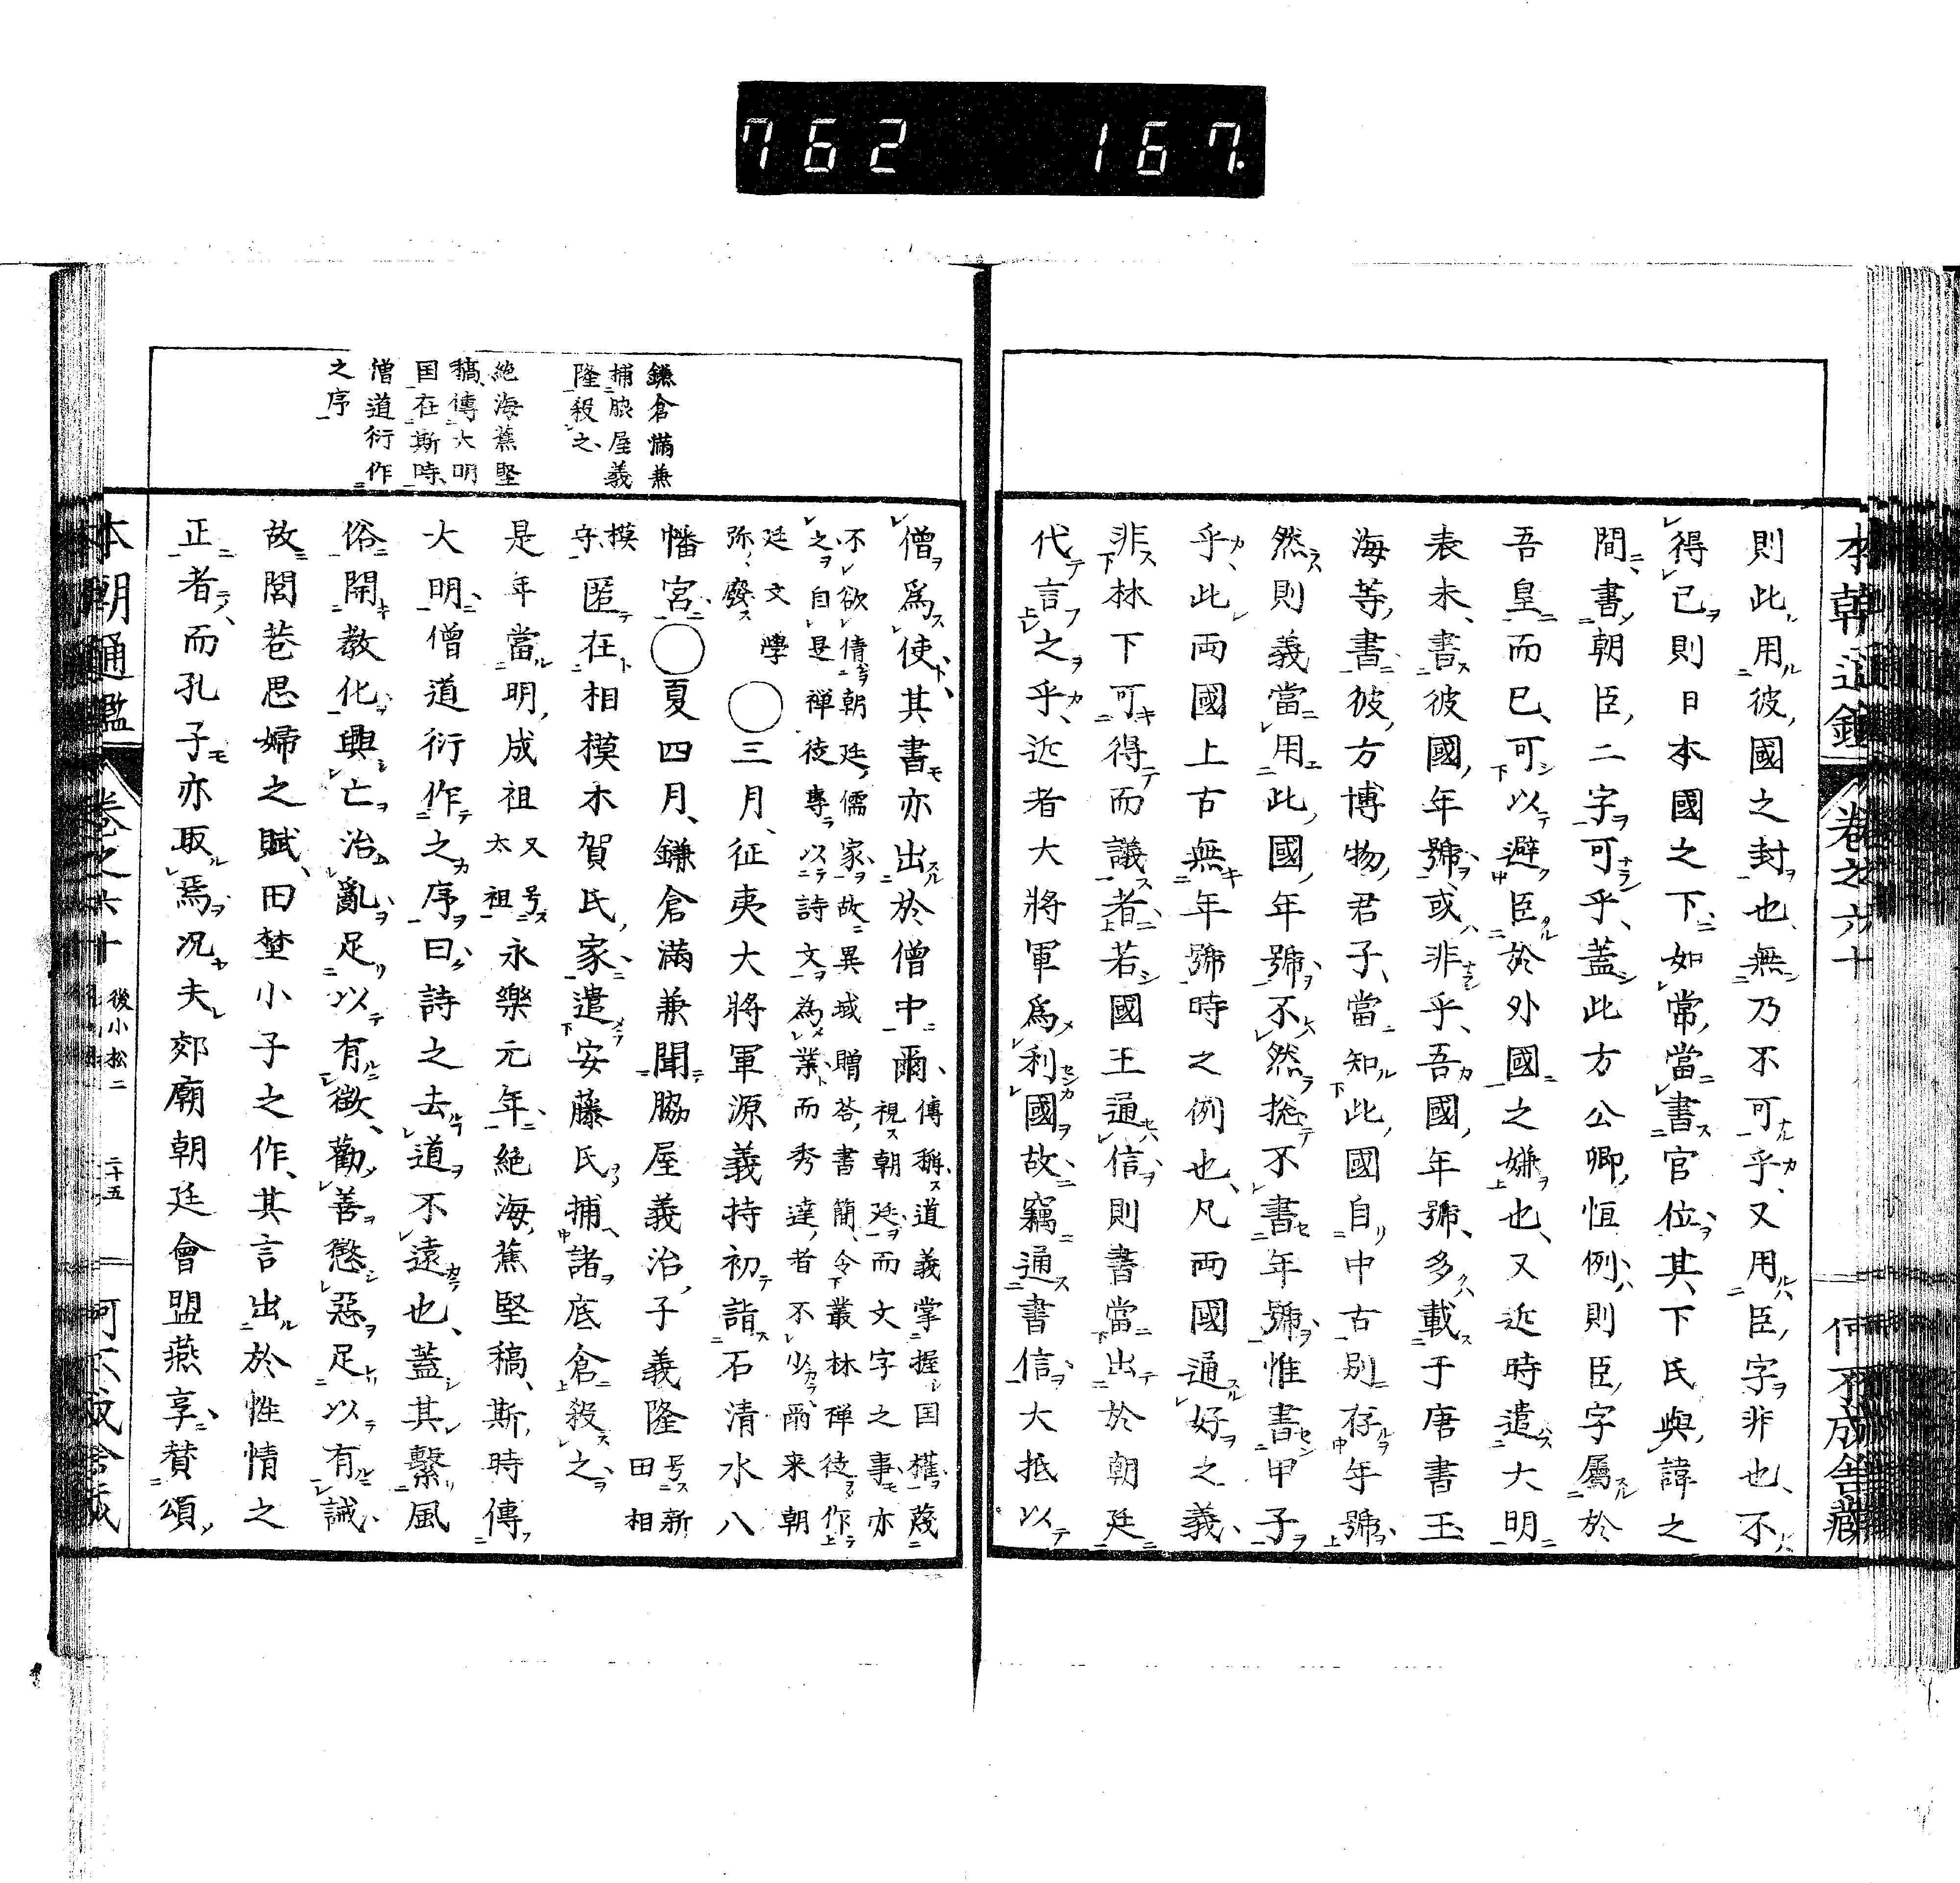 762 167.
本朝通鑑 卷之六十 何不成舎藏
則此用彼國之封也、無乃不可乎、又用臣字非也、不
得已則日本國之下、如常、當書官位、其下氏與諱之
間、書朝臣二字可乎、蓋此方公卿恒例、則臣字屬於
吾皇而已、可以避臣於外國之嫌也、又近時遣大明
表末、書彼國年號、或非乎、吾國年號、多載于唐書玉
海等書、彼方博物君子、當知此國自中古別存年號、
然則義當用此國年號、不然捴不書年號、惟書甲子
乎、此兩國上古無年號時之例也、凡兩國通好之義、
非林下可得而議者、若國王通信、則書當出於朝廷
代言之乎、近者大將軍爲利國故、竊通書信、大抵以
鎌倉滿兼
捕脇屋義
隆殺之、
絶海蕉堅
稿、傳大明
国在斯時、
僧道衍作
之序
僧爲使、其書亦出於僧中爾、傳稱、道義掌握国權、蔑
視朝廷、而文字之事亦
不欲倩朝廷儒家、故異域贈荅書簡、令叢林禅徒作
之、自是禅徒專以詩文爲業、而秀達者不少、爾来朝
廷文學
弥廢
○三月、征夷大將軍源義持初詣石清水八
幡宮、○夏四月、鎌倉滿兼聞脇屋義治子義隆号新田相
模守、匿在相模木賀氏家、遣安藤氏、捕諸底倉殺之、
是年當明成祖又号太祖永樂元年、絶海蕉堅稿、斯時傳
大明、僧道衍作之序曰、詩之去道不遠也、蓋其繫風
俗、關教化、興亡治亂、足以有徵、勸善懲惡、足以有誡、
故閭巷思婦之賦、田埜小子之作、其言出於性情之
正者、而孔子亦取焉、况夫郊廟朝廷會盟燕享、賛頌
本朝通鑑 卷之六十 後小松二 二十五 何不成舎藏